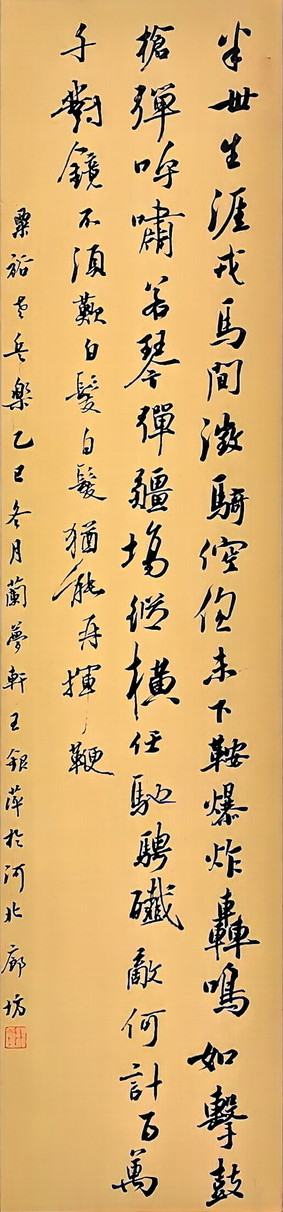 半世生涯戎馬間激騎倥傯未下鞍爆炸轟鳴如擊鼓
槍彈呼嘯若琴彈疆場縱橫任馳騁殲敵何計百萬
千對鏡不須歎白髮白髮猶能再揮鞭
粟裕老兵樂乙巳冬月蘭夢軒王銀萍於河北廊坊